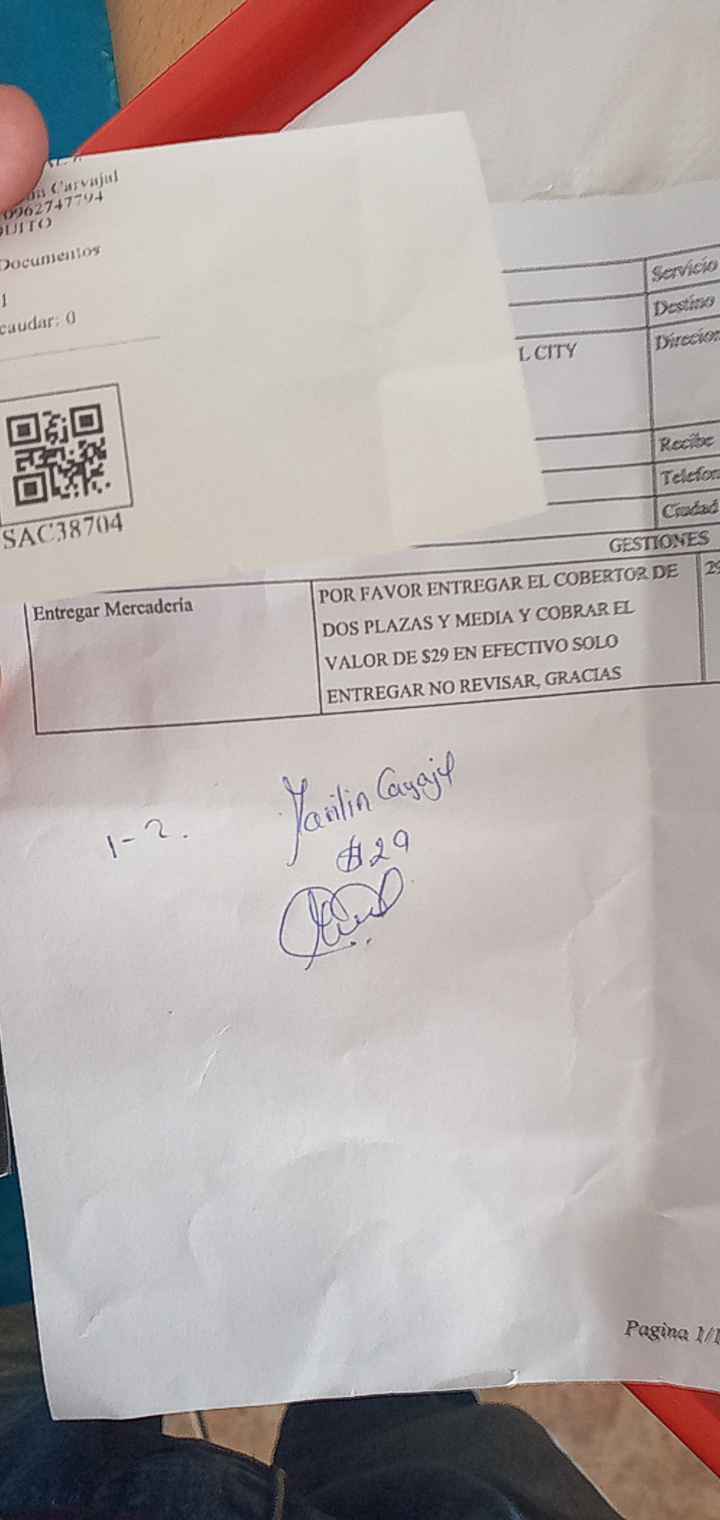 Carvajal
0962747794
QUITO
Documentos
1
caudar: 0
SAC38704
Servicio
Destino
L CITY
Direcion
Recibe
Telefon
Ciudad
GESTIONES
Entregar Mercaderia
POR FAVOR ENTREGAR EL COBERTOR DE
DOS PLAZAS Y MEDIA Y COBRAR EL
VALOR DE $29 EN EFECTIVO SOLO
ENTREGAR NO REVISAR, GRACIAS
29
1-2.
$29
Pagina 1/1